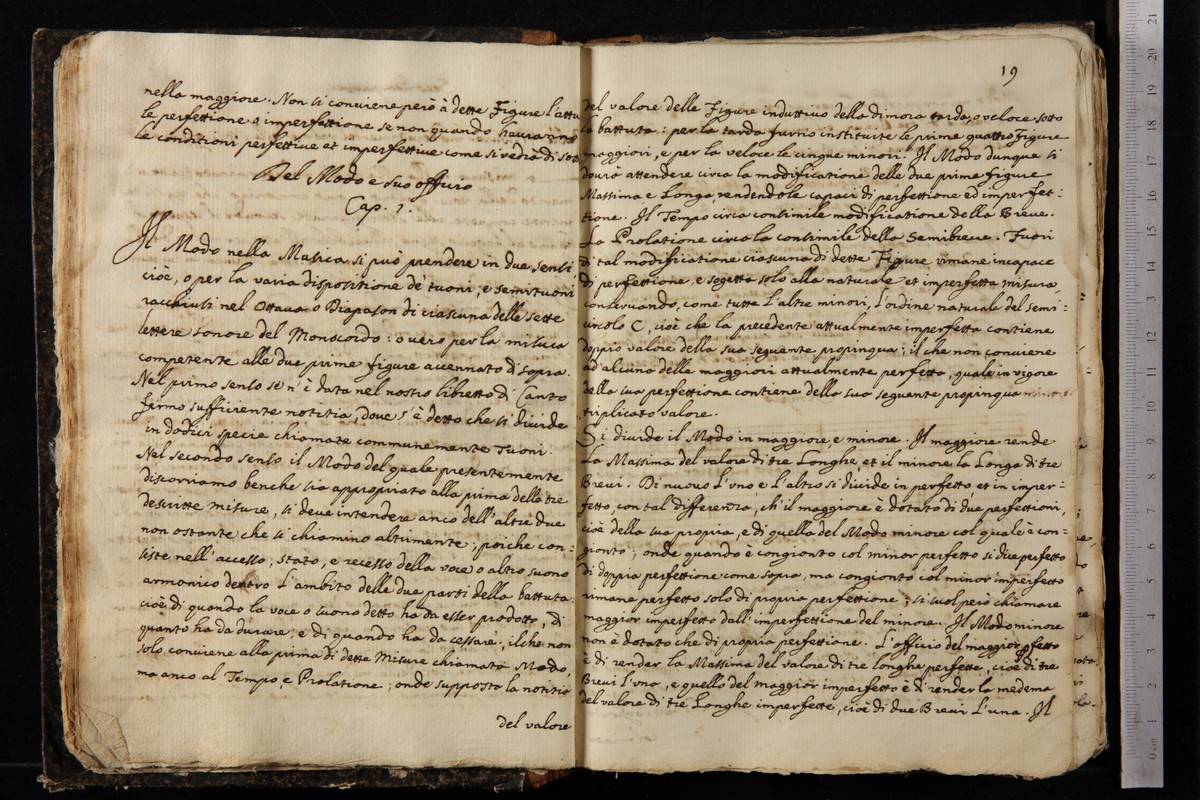 nella maggiore. Non si conviene però à dette Figure l'attua
le perfettione o imperfettione se non quando hauranno
le conditioni perfettiue et imperfettiue come si vedrà di sot
Del Modo e suo officio
Cap. 7.
Il Modo nella Musica si può prendere in due sensi
cioè, o per la varia dispositione de' tuoni, e semituoni
racchiusi nel Ottava o Diapason di ciascuna delle sette
lettere sonore del Monocordo: o uero per la misura
competente alle due prime figure accennato di sopra.
Nel primo senso se n' è data nel nostro libretto di Canto
fermo sufficiente notitia, doue s' è detto che si diuide
in dodici specie chiamate communemente Tuoni.
Nel secondo senso il Modo del quale presentemente
discorriamo benche sia appropriato alla prima delle tre
descritte misure, si deue intendere anco dell'altre due
non ostante che si chiamino altrimente; poiche con:
siste nell' accesso, stato, e recesso della voce o altro suono
armonico dentro l'ambito delle due parti della battuta:
cioè di quando la voce o suono detto ha da esser prodotto, di
quanto ha da durare; e di quando ha da cessare; il che non
solo conviene alla prima di dette Misure chiamata Modo,
ma anco al Tempo, e Prolatione; onde supposta la notitia
del valore
19
del valore delle Figure induttiuo della dimora tarda, o veloce sotto
la battuta: per la tarda furno instituite le prime quattro Figure
maggiori, e per la veloce le cinque minori. Il Modo dunque si
dourà attendere circa la modificatione delle due prime figure
Massima e Longa rendendole capaci di perfettione ed imperfet:
tione. Il Tempo circa consimile modificatione della Breue.
La Prolatione circa la consimile della Semibreue. Fuori
di tal modificatione ciascuna di dette Figure rimane incapace
di perfettione, e sogetta solo alla naturale et imperfetta misura
conseruando, come tutte l'altre minori, l'ordine naturale del semi:
circolo C, cioè che la precedente attualmente imperfetta contiene
doppio valore della sua seguente propinqua; il che non conviene
ad alcuna delle maggiori attualmente perfetta, quale in vigore
della sua perfettione contiene della sua seguente propinqua
triplicato valore.
Si diuide il Modo in maggiore, e minore. Il maggiore rende
la Massima del valore di tre Longhe, et il minore la Longa di tre
Breui. Di nuouo l'vno e l'altro si diuide in perfetto, et in imper:
fetto, con tal differenza, ch' il maggiore è dotato di due perfettioni,
cioè della sua propria, e di quella del Modo minore col quale è con:
gionto; onde quando è congionto col minor perfetto si dice perfetto
di doppia perfettione come sopra, ma congionto col minor imperfetto
rimane perfetto solo di propria perfettione; si suol però chiamare
maggior imperfetto dall' imperfettione del minore. Il Modo minore
non è dotato che di propria perfettione. L'officio del maggior pfetto
è di render la Massima del valore di tre longhe perfette, cioè di tre
Breui l'vna, e quello del maggior imperfetto è di render la medema
del valore di tre Longhe imperfette, cioè di due Breui l'una. Il